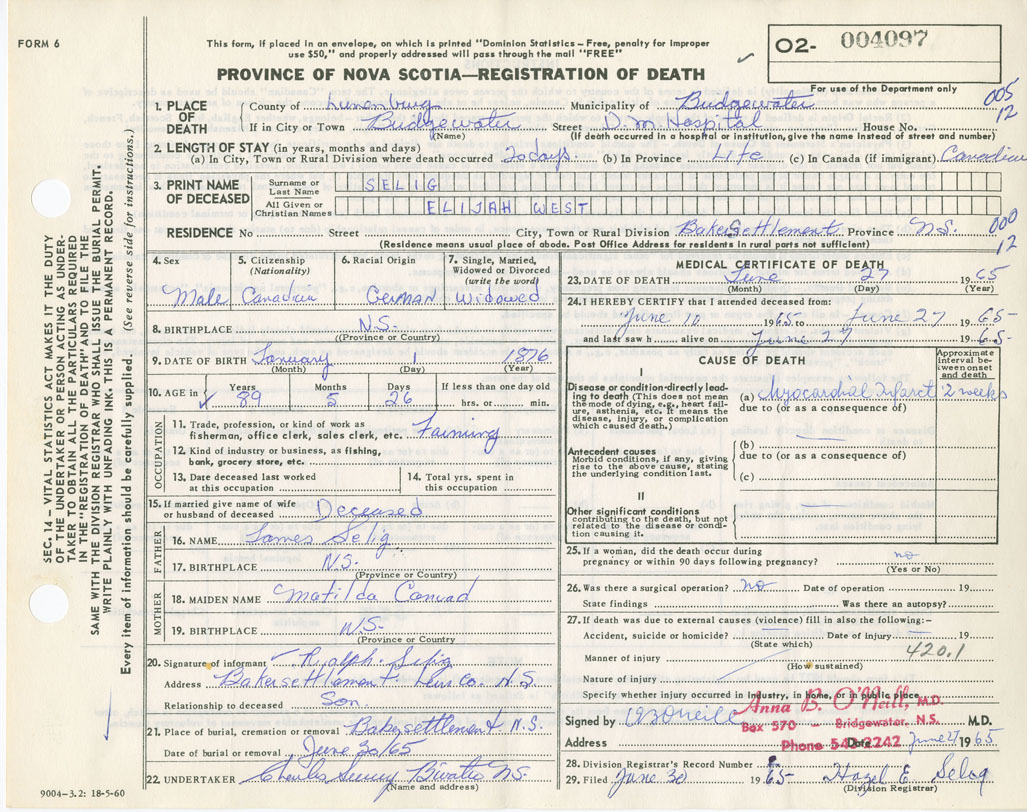 FORM 6
This form, if placed in an envelope, on which is printed "Dominion Statistics – Free, penalty for improper
use $50," and properly addressed will pass through the mail "FREE"
02- 004097
For use of Department only
PROVINCE OF NOVA SCOTIA—REGISTRATION OF DEATH
005
12
1. PLACE OF DEATH
County of Lunenburg Municipality of Bridgewater
If in City or Town Bridgewater Street D.M. Hospital House No.
(Name) (If death occurred in a hospital or institution, give the name instead of street and number)
2. LENGTH OF STAY (in years, months and days)
(a) In City, Town or Rural Division where death occurred 20 days. (b) In Province Life (c) In Canada (if immigrant) Canadian
3. PRINT NAME OF DECEASED
Surname or Last Name SELIG
All Given or Christian Names ELIJAH WEST
RESIDENCE No Street City, Town or Rural Division Bakersettlement Province N.S.
000
12
(Residence means usual place of abode. Post Office Address for residents in rural parts not sufficient)
4. Sex Male
5. Citizenship (Nationality) Canadian
6. Racial Origin GERMAN
7. Single, Married, Widowed or Divorced (write the word) Widowed
8. BIRTHPLACE N.S.
(Province or Country)
9. DATE OF BIRTH January 1 1876
(Month) (Day) (Year)
10. AGE in Years 89 Months 5 Days 26 If less than one day old
hrs. or min.
OCCUPATION
11. Trade, profession, or kind of work as
fisherman, office clerk, sales clerk, etc. Farming
12. Kind of industry or business, as fishing,
bank, grocery store, etc.
13. Date deceased last worked
at this occupation
14. Total yrs. spent in
this occupation
15. If married give name of wife
or husband of deceased Deceased
FATHER
16. NAME James Selig
17. BIRTHPLACE N.S.
(Province or Country)
MOTHER
18. MAIDEN NAME Matilda Conrad
19. BIRTHPLACE N/S-
(Province or Country)
20. Signature of informant Ralph Selig
Address Bakersettlement Lun. Co. N.S.
Relationship to deceased Son.
21. Place of burial, cremation or removal Bakersettlement N.S.
Date of burial or removal June 30/65
22. UNDERTAKER Charles N.S.
(Name and address)
MEDICAL CERTIFICATE OF DEATH
23. DATE OF DEATH June 27 1965
(Month) (Day) (Year)
24. I HEREBY CERTIFY that I attended deceased from:
June 10 1965 to June 27 1965-
and last saw h alive on June 27 1965-
CAUSE OF DEATH
Approximate interval between onset and death
I
Disease or condition directly leading
to death (This does not mean
the mode of dying, e.g., heart failure,
asthenia, etc. It means the
disease, injury, or complication
which caused death.)
(a) Myocardial Infarct 2 weeks
due to (or as a consequence of)
Antecedent causes
Morbid conditions, if any, giving
rise to the above cause, stating
the underlying condition last.
(b)
due to (or as a consequence of)
(c)
II
Other significant conditions
contributing to the death, but not
related to the disease or condition
causing it.
25. If a woman, did the death occur during
pregnancy or within 90 days following pregnancy? no
(Yes or No)
26. Was there a surgical operation? no Date of operation 19
State findings Was there an autopsy?
27. If death was due to external causes (violence) fill in also the following:-
Accident, suicide or homicide? Date of injury 19
(State which)
Manner of injury 420.1
(How sustained)
Nature of injury
Specify whether injury occurred in industry, in home, or in public place
Anna B. O'Neill, M.D.
Box 570 – Bridgewater, N.S.
Phone 543-2242
Signed by A B O'Neill M.D.
Address Date June 27 1965
28. Division Registrar's Record Number
29. Filed June 30 1965- Hazel E. Selig
(Division Registrar)
SEC. 14 – VITAL STATISTICS ACT MAKES IT THE DUTY
OF THE UNDERTAKER OR PERSON ACTING AS UNDER-
TAKER TO OBTAIN ALL THE PARTICULARS REQUIRED
IN THE "REGISTRATION OF DEATH" AND TO FILE THE
SAME WITH THE DIVISION REGISTRAR WHO SHALL ISSUE THE BURIAL PERMIT.
WRITE PLAINLY WITH UNFADING INK–THIS IS A PERMANENT RECORD.
Every item of information should be carefully supplied. (See reverse side for instructions.)
9004-3.2: 18-5-60